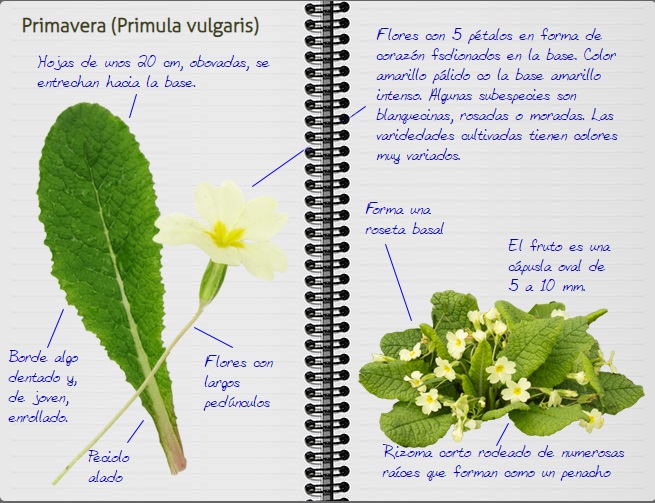 Primavera (Primula vulgaris)
Hojas de unos 20 cm, obovadas, se
entrechan hacia la base.
Borde algo
dentado y,
de joven,
enrollado.
Peciolo
alado
Flores con
largos
pedúnculos
Flores con 5 pétalos en forma de
corazón fsdionados en la base. Color
amarillo pálido co la base amarillo
intenso. Algunas subespecies son
blanquecinas, rosadas o moradas. Las
varidedades cultivadas tienen colores
muy variados.
Forma una
roseta basal
El fruto es una
cápusla oval de
5 a 10 mm.
Rizoma corto rodeado de numerosas
raíces que forman como un penacho